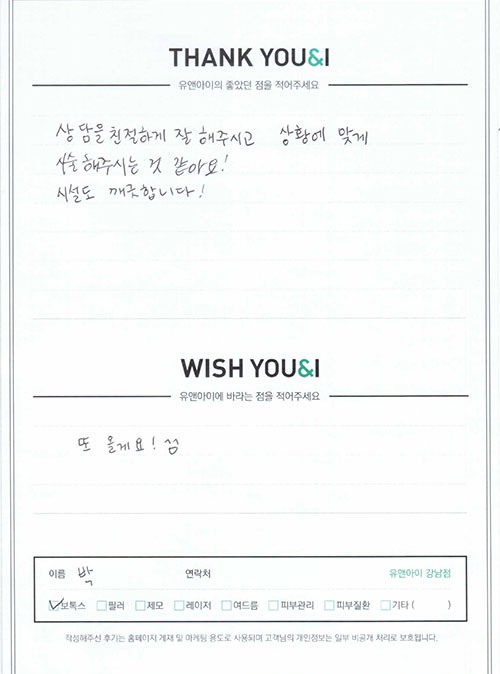 THANK YOU&I
유앤아이의 좋았던 점을 적어주세요
상담을 친절하게 잘 해주시고 상황에 맞게
시술해주시는 것 같아요!
시설도 깨끗합니다!
WISH YOU&I
유앤아이에 바라는 점을 적어주세요
또 올게요!
이름 박 연락처 유앤아이 강남점
보톡스 필러 제모 레이저 여드름 피부관리 피부질환 기타 ( )
작성해주신 후기는 홈페이지 게재 및 마케팅 용도로 사용되며 고객님의 개인정보는 일부 비공개 처리로 보호됩니다.